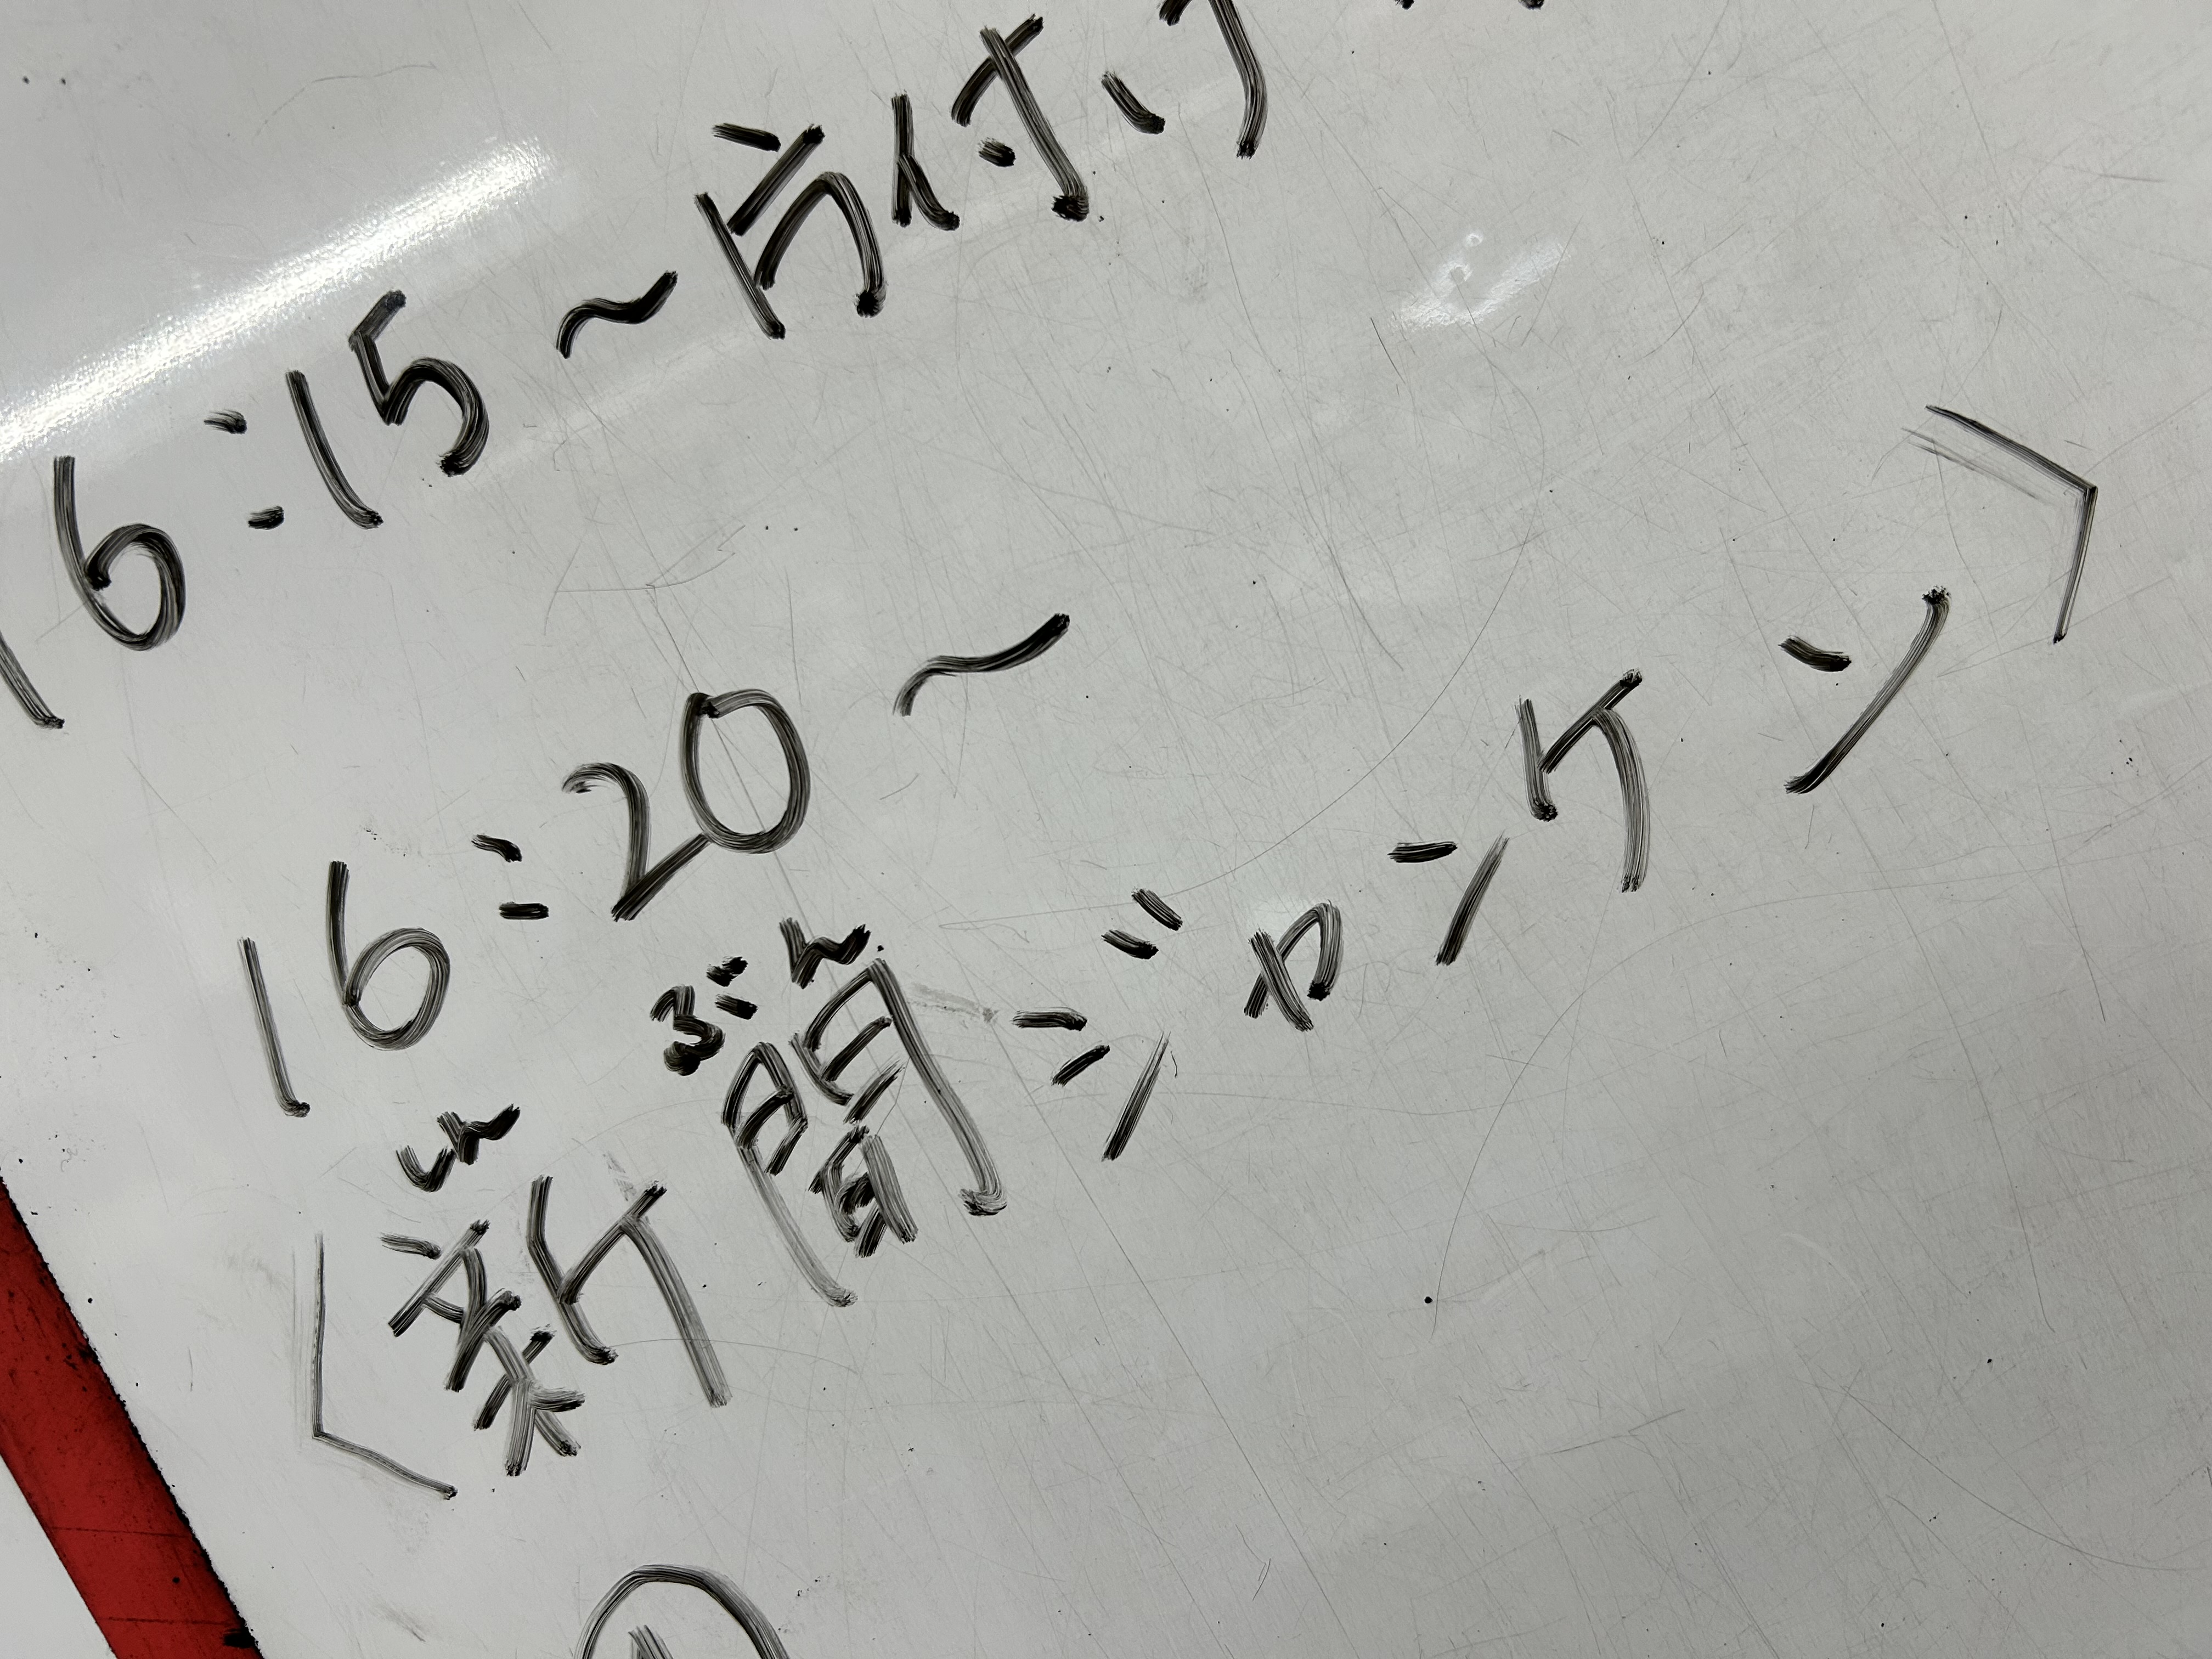 16:15～片付け
16:20～
しん ぶん
〈新聞ジャンケン〉